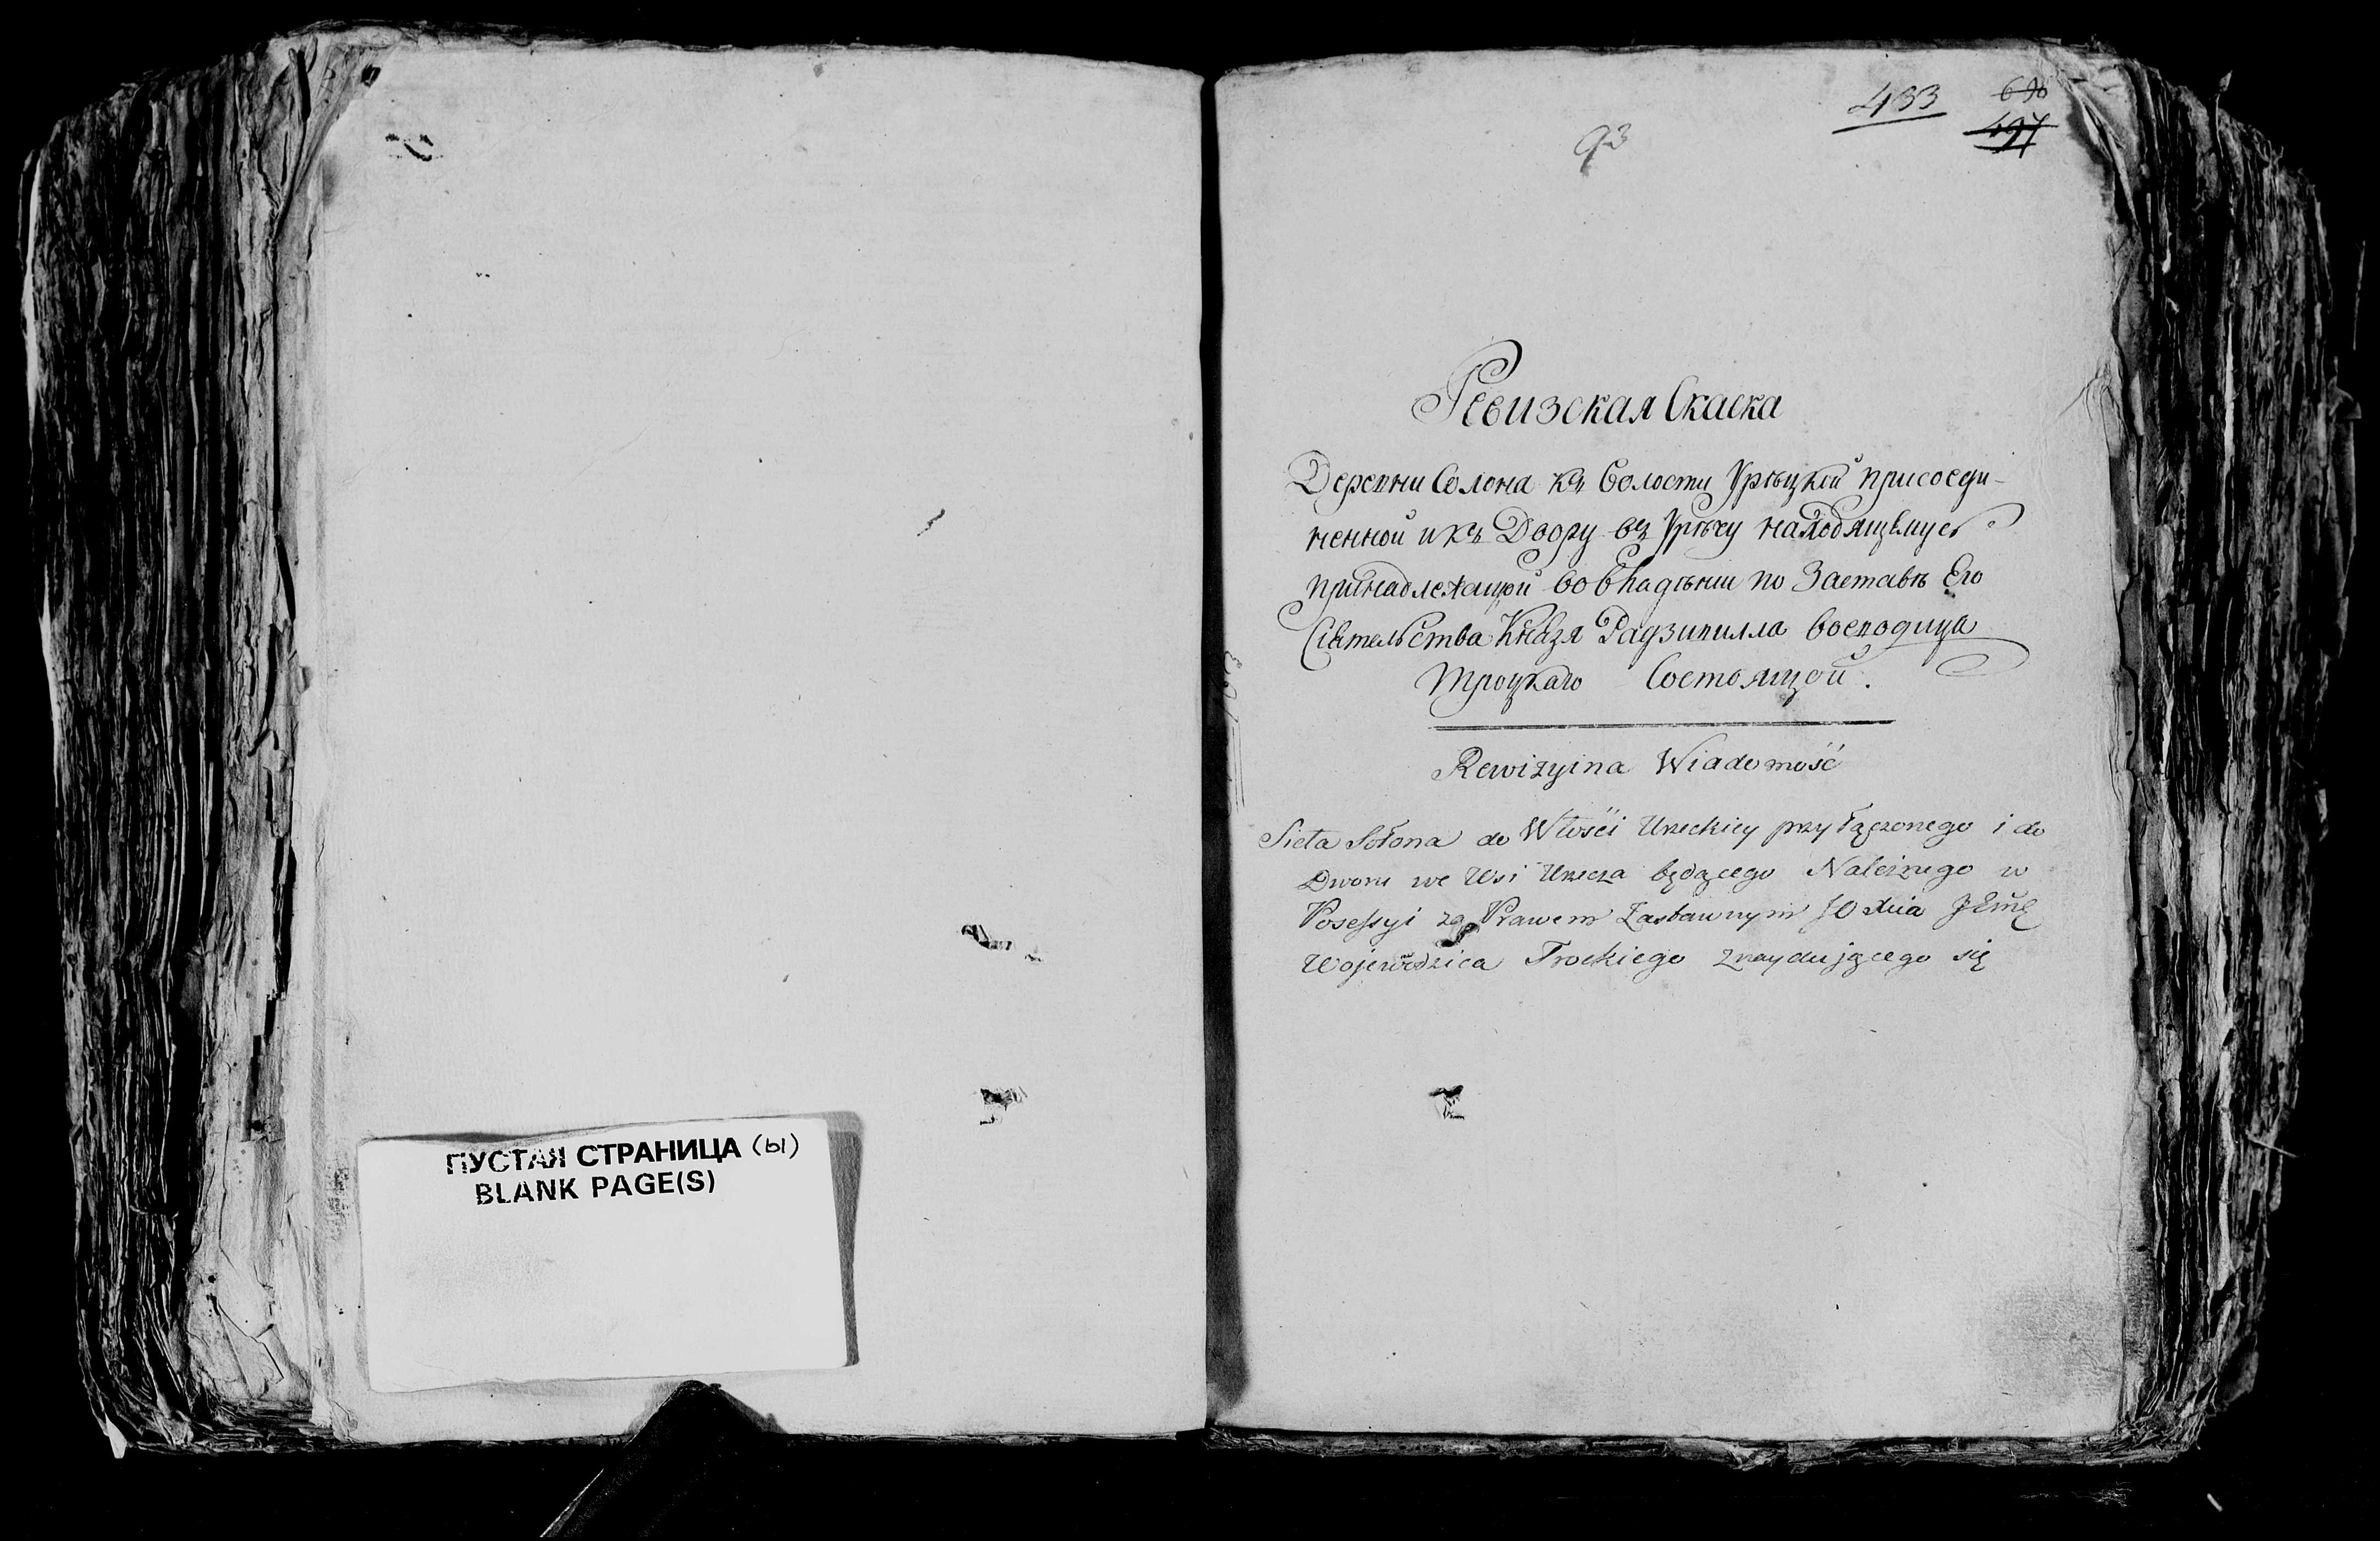 433
93
Ревизская Скаска
Деревни Солона къ Волости Урѣцкой присоеди-
ненной и къ Двору въ Урѣчу находящемуся
принадлежащой во Владѣнии по Заставѣ Его
Сіятельства Князя Радзивилла Воеводица
Троцкаго Состоящой.
Rewizyina Wiadomość
Sieła Sołona do Włości Ureckiey przyłączonego i do
Dworu we Wsi Urecza będącego Należnego w
Posessyi za Prawem Zastawnym JO Xcia
Wojewodzica Trockiego znaydującego się
ПУСТАЯ СТРАНИЦА (Ы)
BLANK PAGE(S)